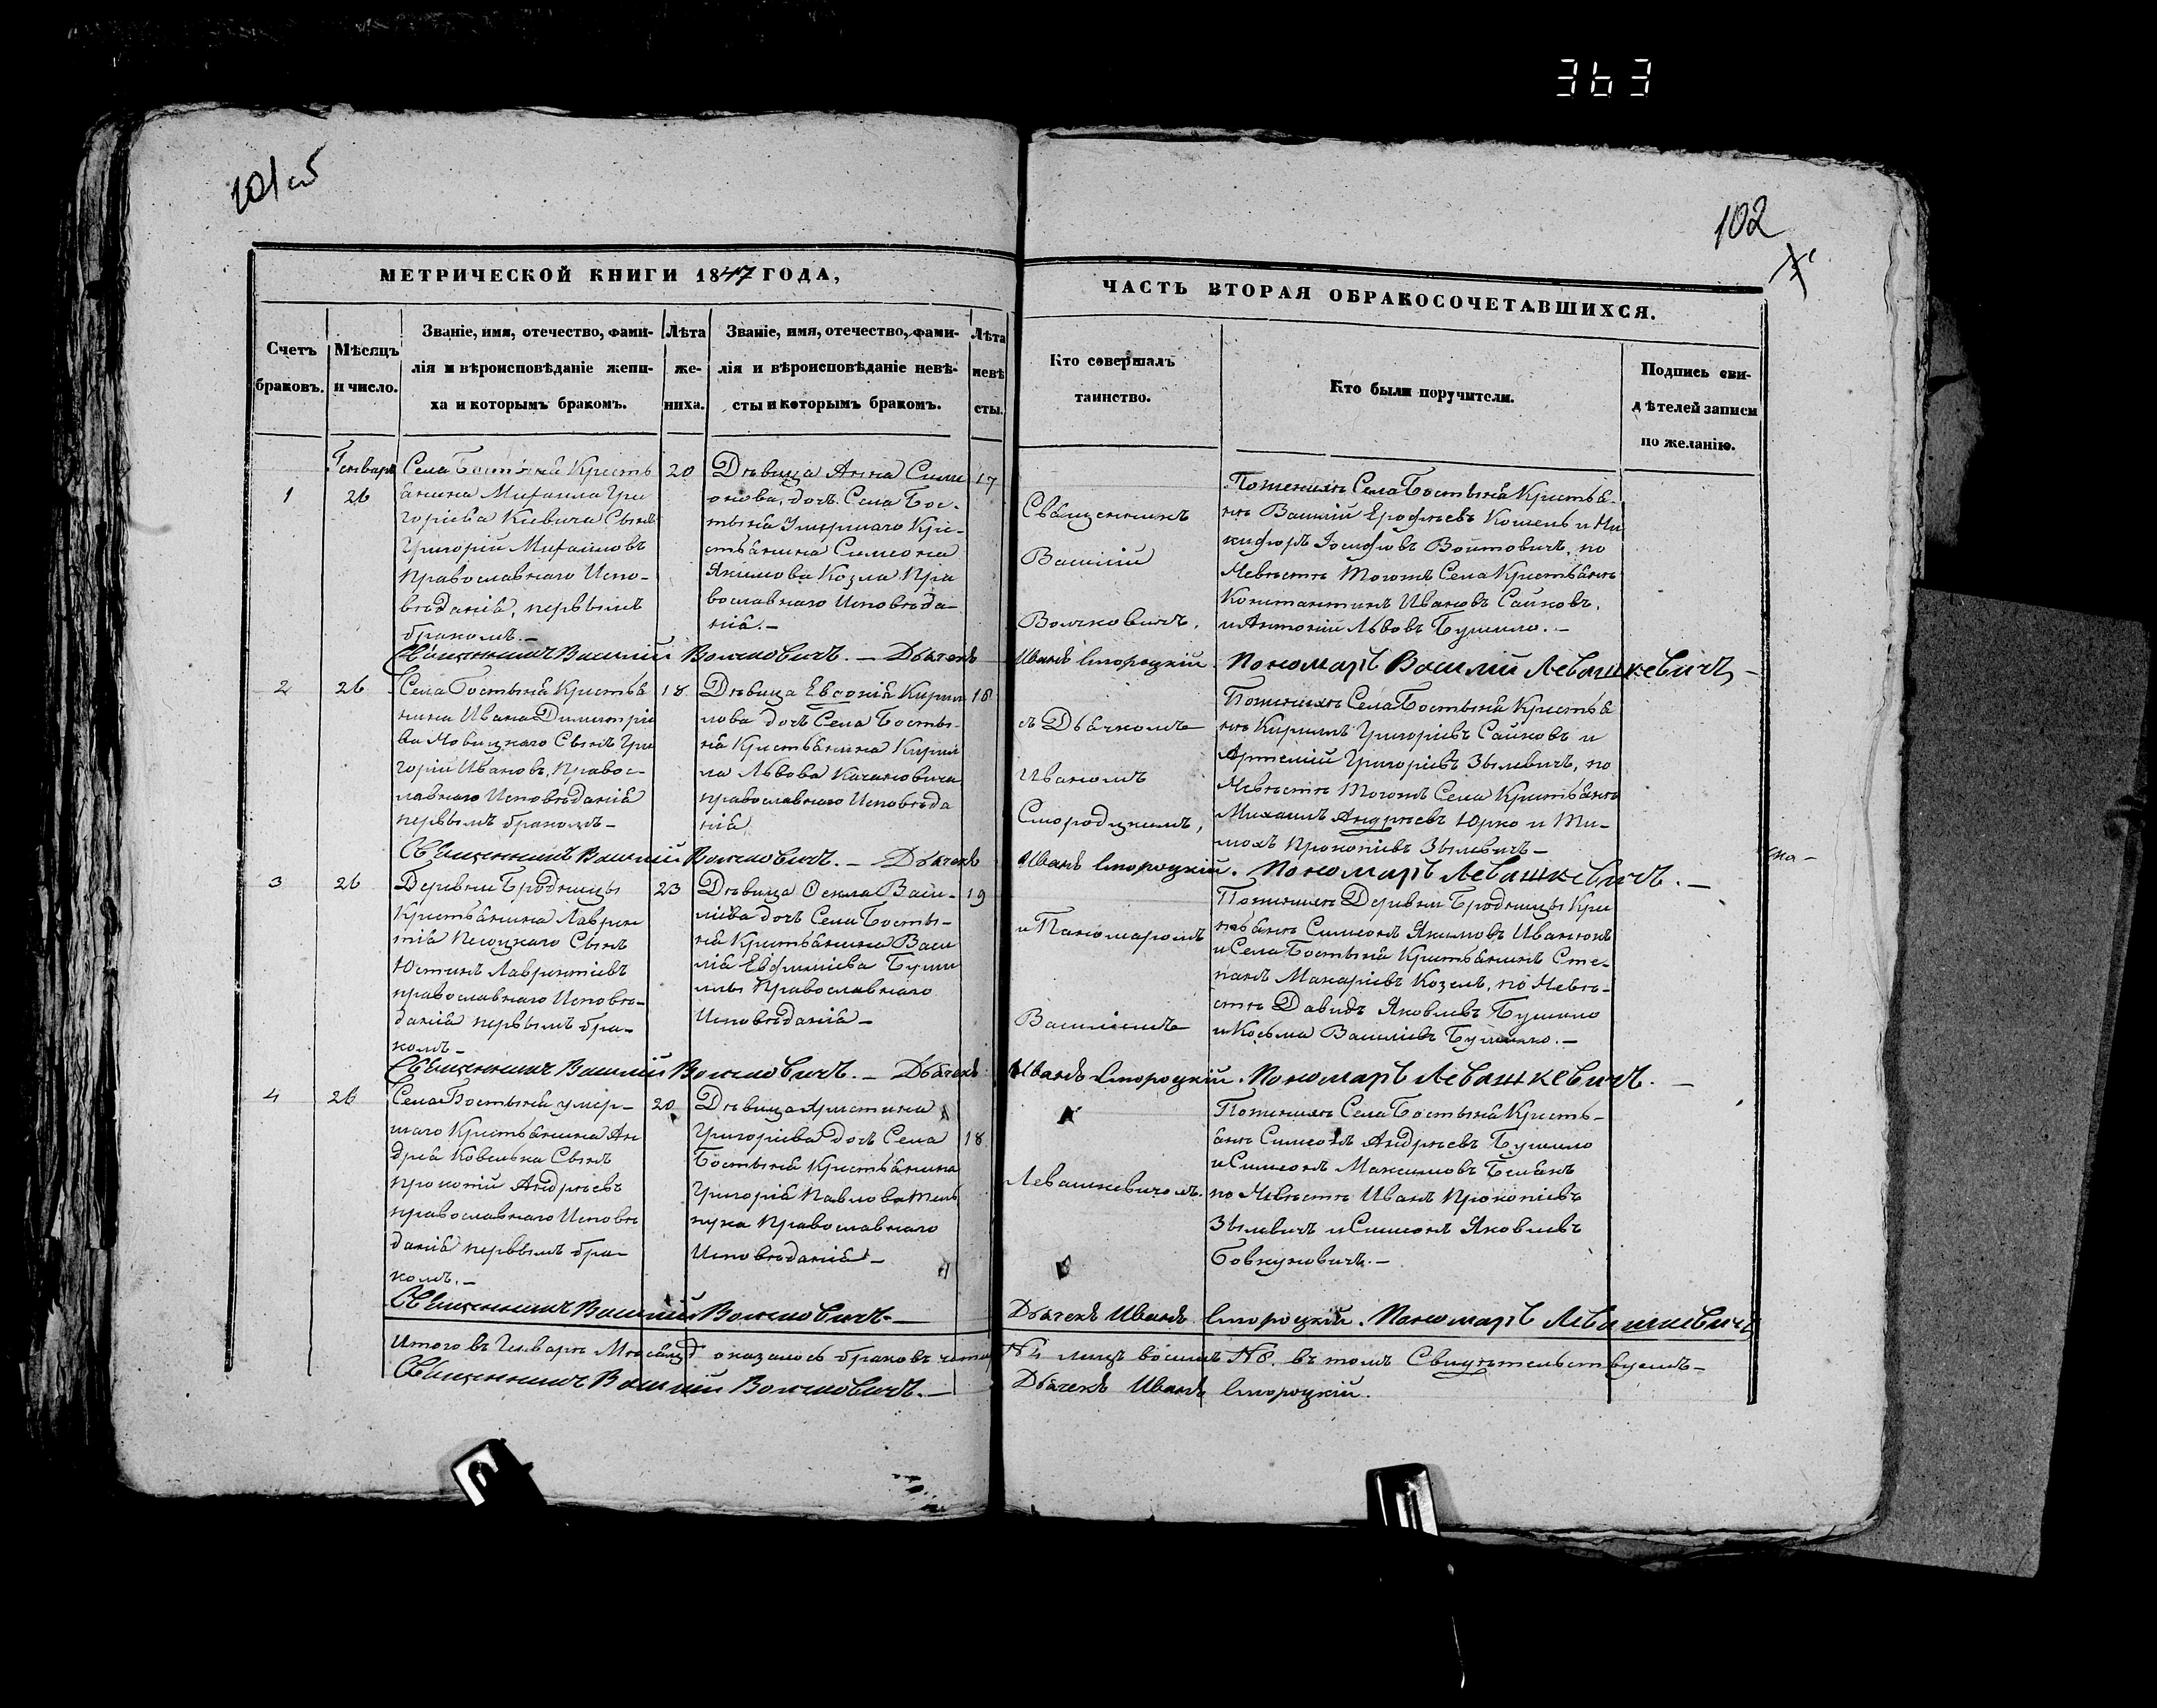 363
101 об
102
МЕТРИЧЕСКОЙ КНИГИ 1847 ГОДА,
ЧАСТЬ ВТОРАЯ ОБРАКОСОЧЕТАВШИХСЯ.
Счетъ
браковъ.
Мѣсяцъ
и число.
Званіе, имя, отечество, фами-
лія и вѣроисповѣданіе жени-
ха и которымъ бракомъ.
Лѣта
же-
ниха.
Званіе, имя, отечество, фами-
лія и вѣроисповѣданіе невѣ-
сты и которымъ бракомъ.
Лѣта
невѣ
сты.
Кто совершалъ
таинство.
Кто были поручители.
Подпись сви-
дѣтелей записи
по желанію.
1
Генваря
26
Села Бостыня Кресть
янина Михаила Гри
горіева Сынъ
Григорій Михаиловъ
Православнаго Испо-
вѣданія, первымъ
бракомъ.-
20
Дѣвица Анна Симе
онова, дочъ Села Бос-
тыня Умершаго Кре-
стьянина Симеона
Якимова Козла Пра
вославнаго Исповѣда-
нія.-
17
Священникъ
Василій
Волчковичъ,
Поженихѣ Села Бостыня Крестья-
нѣ Василій Ерофѣевъ Кошель и Ни
кифоръ Іосифовъ Войтовичъ, по
Невѣстѣ Тогожъ Села Крестьянѣ
Константинъ Ивановъ Сайковъ,
и Антоній Львовъ Бушило.-
Священникъ Василій Волчковичъ. - Дьячекъ Иванъ Смородскій. Пономарь Василій Левашкевичъ -
2
26
Села Бостыня Крестья
нина Ивана Димитріе
ва Новицкаго Сынъ Гри
горій Ивановъ, Правос-
лавнаго Исповѣданія
первымъ бракомъ-
18
Дѣвица Евдокія Кирил
лова дочъ Села Босты-
ня Крестьянина Кирил
ла Львова Качановича
православнаго Исповѣда
нія
18
съ Дьячкомъ
Иваномъ
Смородскимъ,
Поженихѣ Села Бостыня Крестья
нѣ Кириллъ Григоріевъ Сайковъ и
Артемій Григоріевъ Зылевичъ, по
Невѣстѣ Тогожъ Села Крестьянѣ
Михаилъ Андрѣевъ Юрко и Ти-
мохъ Прокопіевъ Зылевичъ-
Священникъ Василій Волчковичъ. - Дьячекъ Иванъ Смородскій. Пономарь Левашкевичъ. -
3
26
Деревни Бродницы
Крестьянина Лаврен
тія Сынъ
Юстинъ Лаврентіевъ
православнаго Исповѣ-
данія первымъ бра-
комъ-
23
Дѣвица Оекла Васи-
ліева дочъ Села Босты-
ня Крестьянина Васи
лія Евфиміева Буши
лы Православнаго
Исповѣданія-
19
и Пономаромъ
Василіемъ
Поженихѣ Деревни Бродницы Кре
стьянѣ Симеонъ Якимовъ Иванюкъ
и Села Бостыня Крестьянинъ Сте-
панъ Макаріевъ Козелъ, по Невѣ-
стѣ Давидъ Яковлевъ Бушило
и Косьма Василіевъ Бушило.-
Священникъ Василій Волчковичъ. - Дьячекъ Иванъ Смородскій. Пономарь Левашкевичъ. -
4
26
Села Бостыня умер-
шаго Крестьянина Ан
дрея Ковелька Сынъ
Прокопій Андрѣевъ
православнаго Исповѣ
данія первымъ бра-
комъ.-
20
Дѣвица Христина
Григоріева дочъ Села
Бостыня Крестьянина
Григорія Павлова Мель
нука Православнаго
Исповѣданія-
18
Левашкевичомъ.
Поженихѣ Села Бостыня Кресть-
янѣ Симеонъ Андрѣевъ Бушило
и Симеонъ Максимовъ
по Невѣстѣ Иванъ Прокопіевъ
Зылевичъ и Симеонъ Яковлевъ
Бовкуновичъ.-
Священникъ Василій Волчковичъ- Дьячекъ Иванъ Смородскій. Пономарь Левашкевичъ
Итого въ Генварѣ Мѣсяцѣ оказалось браковъ четыр N 4 лицъ восемь N 8. въ томъ Свидѣтельствуемъ-
Священникъ Василій Волчковичъ. - Дьячекъ Иванъ Смородскій.